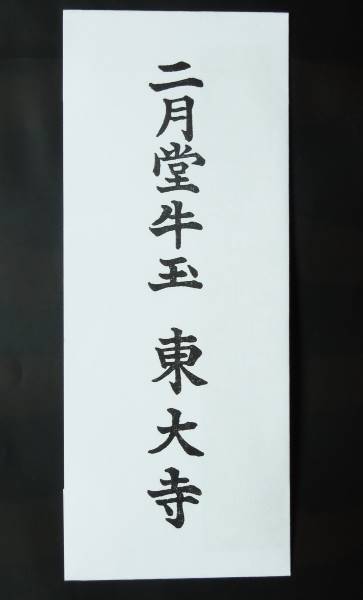 二月堂牛玉 東大寺